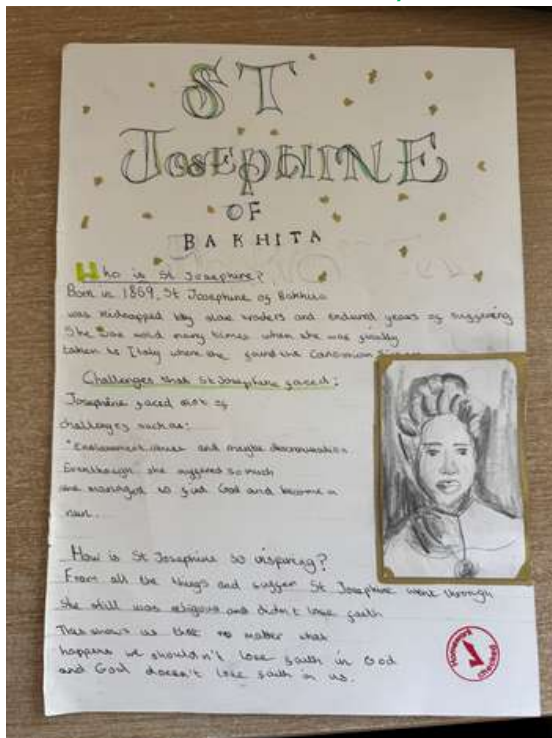 ST
JOSEPHINE
OF
BAKHITA
Who is St Josephine?
Born in 1869, St Josephine of Bakhita
was kidnapped by slave traders and endured years of suffering
She was sold many times when she was finally
taken to Italy where she found the Canossian
Challenges that St Josephine faced:
Josephine faced alot of
challenges such as:
Enslavement, abuse and maybe discrimination
Eventhough she suffered so much
she managed to find God and become a
nun.
How is St Josephine so inspiring?
From all the things and suffer St Josephine went through
She still was religious and didn't lose faith
This shows us that no matter what
happens we shouldn't lose faith in God
and God doesn't lose faith in us.
Homework
checked